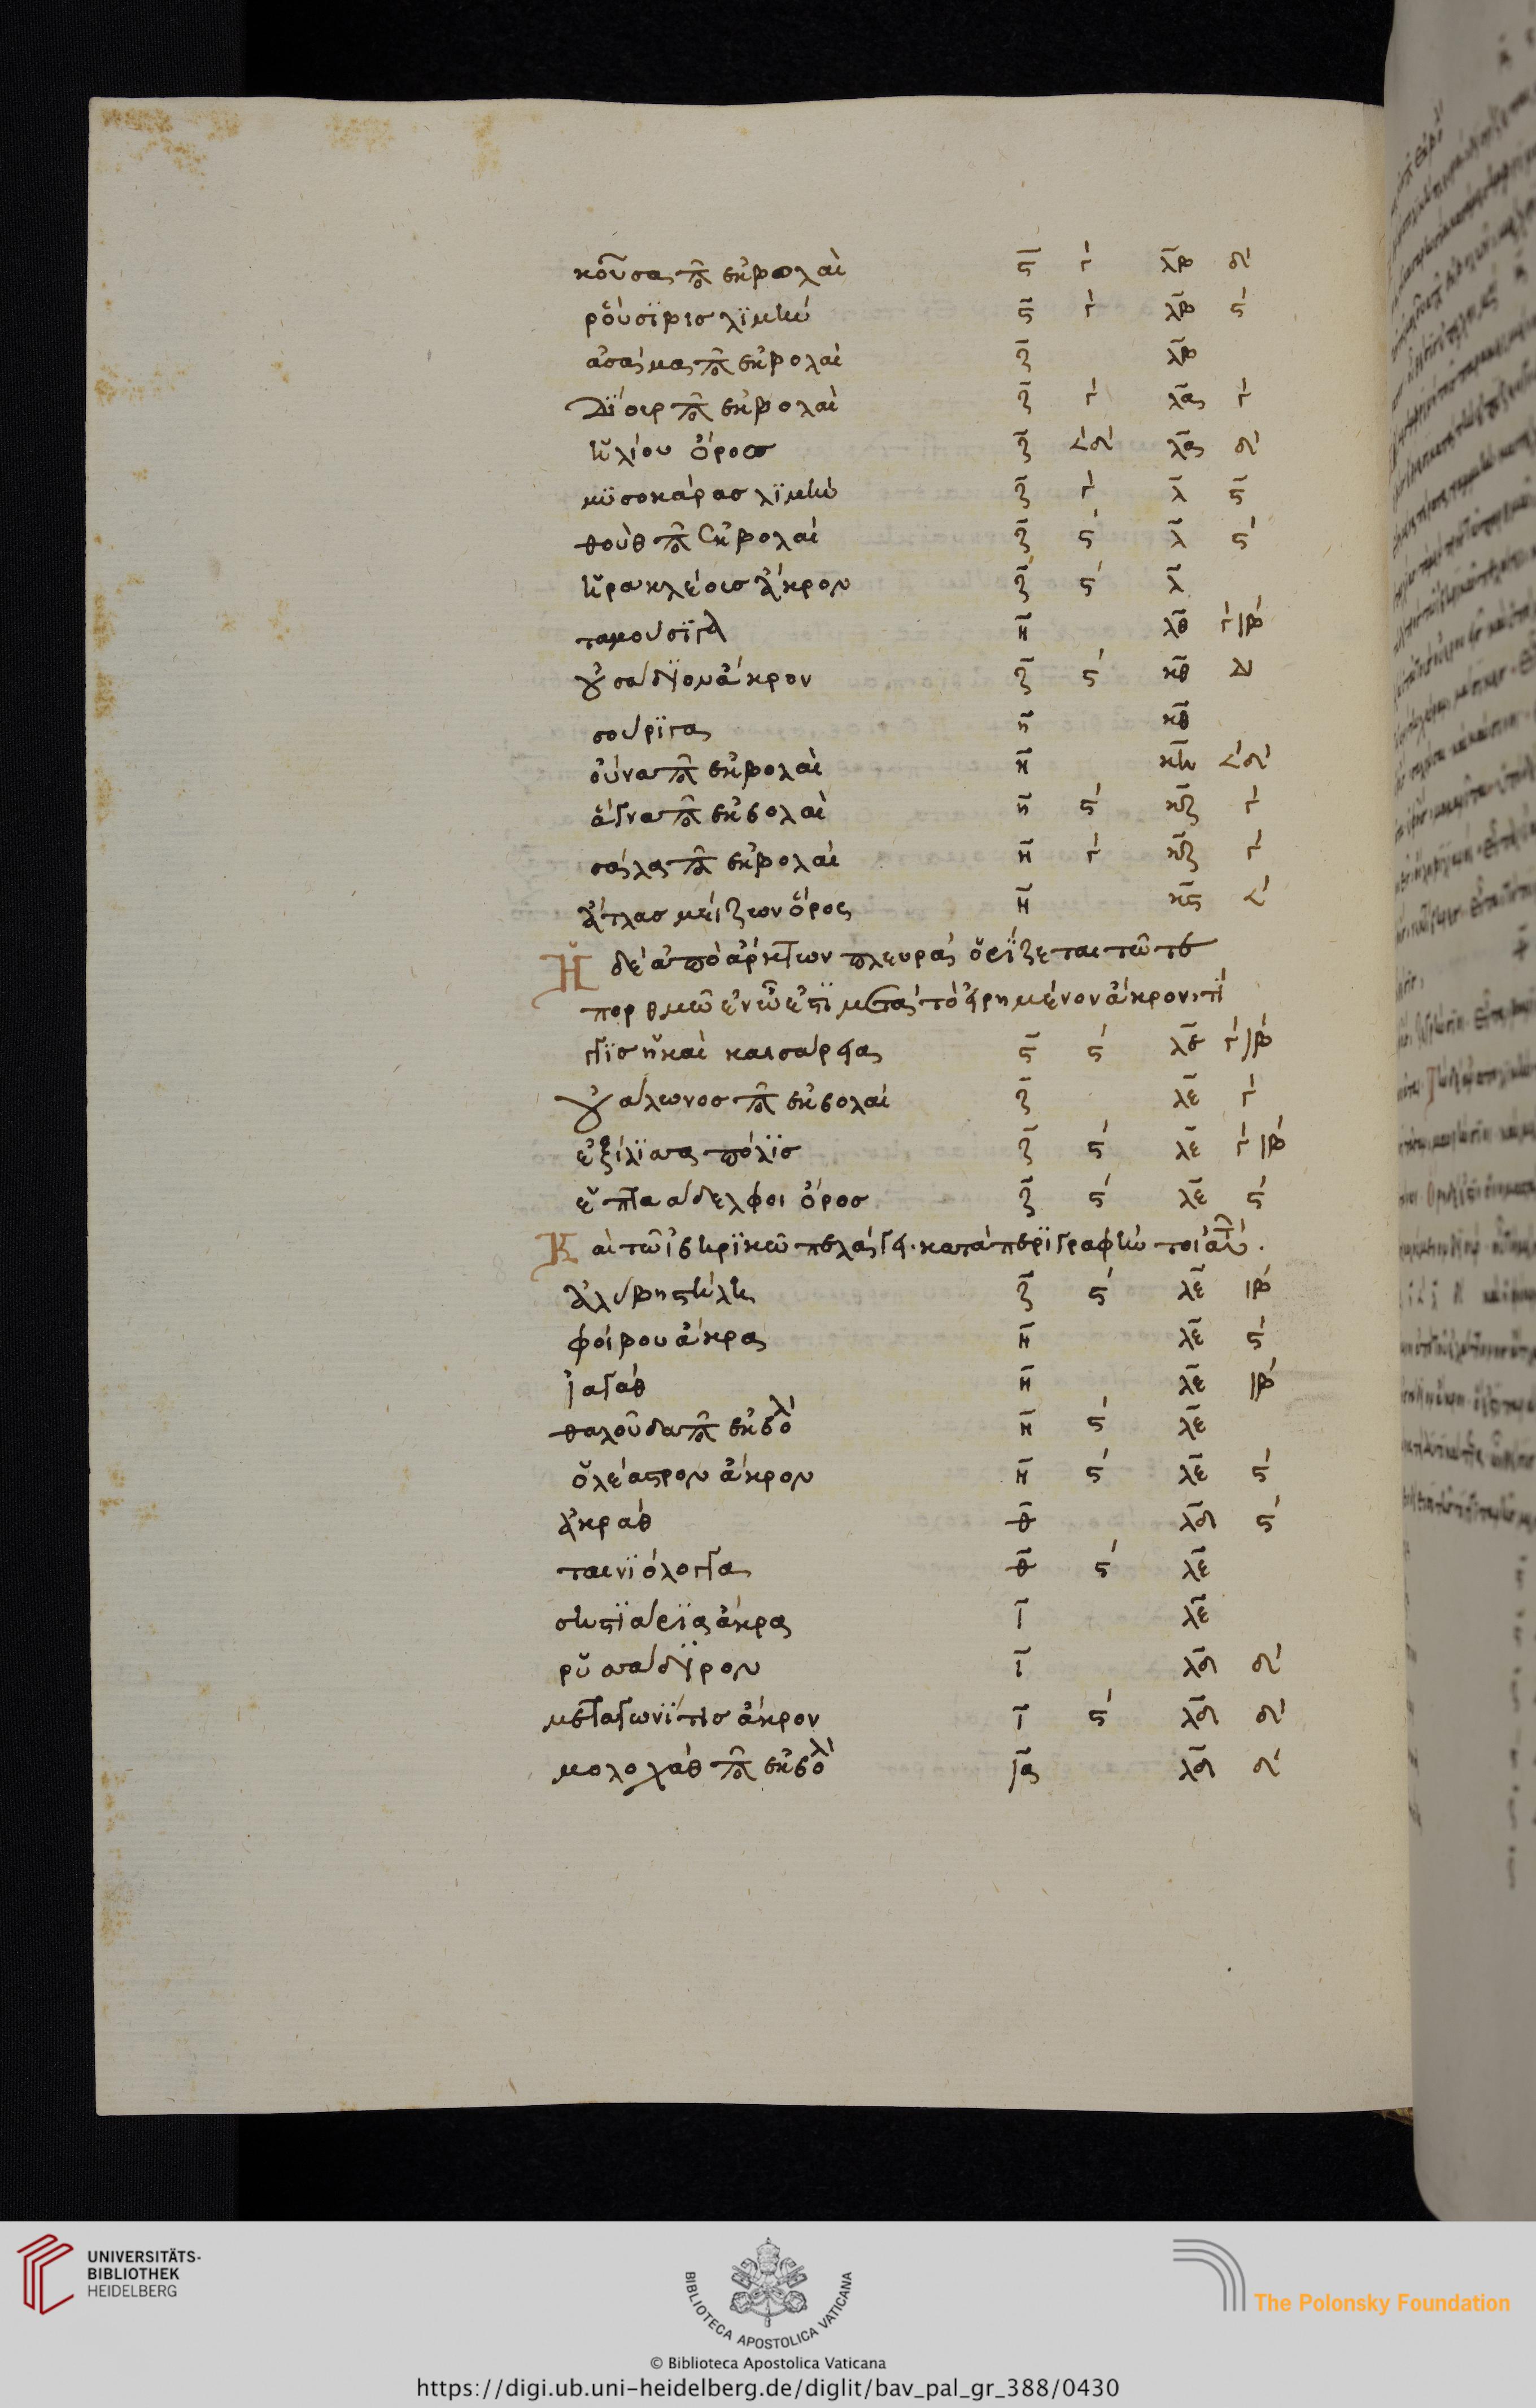 κούσα ποτ ἐκβολαὶ ϛ γ´ λβ δ´
ῥούσϊβισ λϊμὴν ϛ γ´ λβ ϛ´
ἀσάμα ποτ ἐκβολαὶ ζ λβ
Δΐουρ ποτ ἐκβολαὶ ζ γ´ λα γ´
ἡλίου ὄροσ ζ ∠´δ´ λα δ´
μϋσοκάρασ λϊμὴν ζ γ´ λ ϛ
θοὺθ ποτ ἐκβολαὶ ζ ϛ´ λ ϛ´
ἡρακλέουσ ἄκρον ζ ϛ´ λ
ταμούσϊγα η κθ γ´ιβ´
οὐσάδϊον ἄκρον ζ ϛ´ κθ
σούρϊγα η κθ
οὔνα ποτ ἐκβολαὶ η κη ∠´δ´
ἄγνα ποτ ἐκβολαὶ η ϛ´ κζ γ´
σάλα ποτ ἐκβολαὶ η γ´ κζ γ´
ἄτλασ μείζων ὄρος η κϛ ∠´
Ἡ δὲ ἀπὸ ἄρκτων πλευρὰ ὁρΐζεται τῶ τε
πορθμῶ ἐν ὧ ἐπϊ μετὰ τὸ εἰρημένον ἄκρον,
τΐγγϊσ ἡ καὶ καισάρεια ϛ ϛ´ λε γ´ιβ´
οὐάλωνοσ ποτ ἐκβολαὶ ζ λε γ´
ἐξίλϊσσα πόλϊσ ζ ϛ´ λε γ´ιβ´
ἑπτα ἀδελφοι ὄροσ ζ ϛ´ λε ϛ´
Καὶ τῶ ἰβηρϊκῶ πελάγει· κατὰ περϊγραφὴν τοιαύτην.
ἀλύβη στήλη ζ ϛ´ λε ιβ´
φοίβου ἄκρα η λε ϛ´
ἰαγὰθ η λε ιβ´
θαλοῦδα ποτ ἐκβολ η ϛ´ λε
ὀλέαστρον ἄκρον η ϛ´ λε ϛ´
ἀκράθ θ λδ ϛ´
ταινϊόλογγα θ ϛ´ λε
σηστϊάρϊα ἄκρα ι λε
ῥυσσάδϊρον ι λδ δ´
μεταγωνΐτισ ἄκρον ι ϛ´ λδ δ´
μολοχὰθ ποτ ἐκβολ ια λδ δ´
UNIVERSITÄTS-
BIBLIOTHEK
HEIDELBERG
BIBLIOTECA APOSTOLICA VATICANA
The Polonsky Foundation
© Biblioteca Apostolica Vaticana
https://digi.ub.uni-heidelberg.de/diglit/bav_pal_gr_388/0430